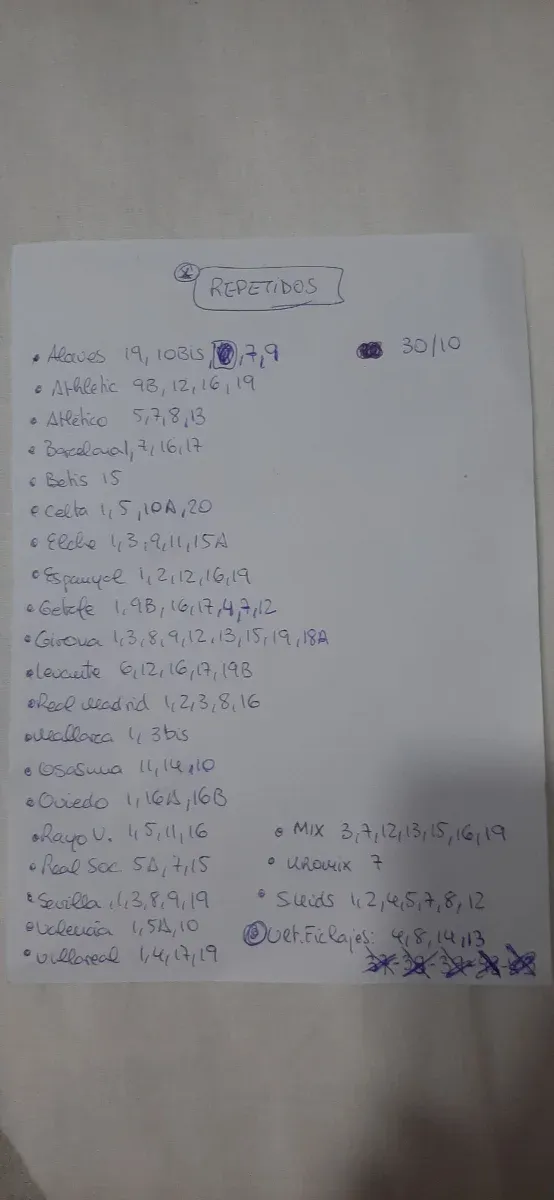 REPETIDOS
• Alaves 19, 10Bis, 7, 9
30/10
• Athletic 9B, 12, 16, 19
• Atlético 5, 7, 8, 13
• Barcelona 1, 7, 16, 17
• Betis 15
• Celta 1, 5, 10A, 20
• Elche 1, 3, 9, 11, 15A
• Espanyol 1, 2, 12, 16, 19
• Getafe 1, 9B, 16, 17, 4, 7, 12
• Girona 1, 3, 8, 9, 12, 13, 15, 19, 18A
• Levante 6, 12, 16, 17, 19B
• Real Madrid 1, 2, 3, 8, 16
• Mallorca 1, 3bis
• Osasuna 11, 14, 10
• Oviedo 1, 16A, 16B
• Rayo V. 1, 5, 11, 16
• MIX 3, 7, 12, 13, 15, 16, 19
• Real Soc. 5A, 7, 15
• UROMIX 7
• Sevilla 1, 3, 8, 9, 19
• S.kids 1, 2, 4, 5, 7, 8, 12
• Valencia 1, 5A, 10
Ult. Fichajes: 4, 8, 14, 13
• Villareal 1, 4, 17, 19